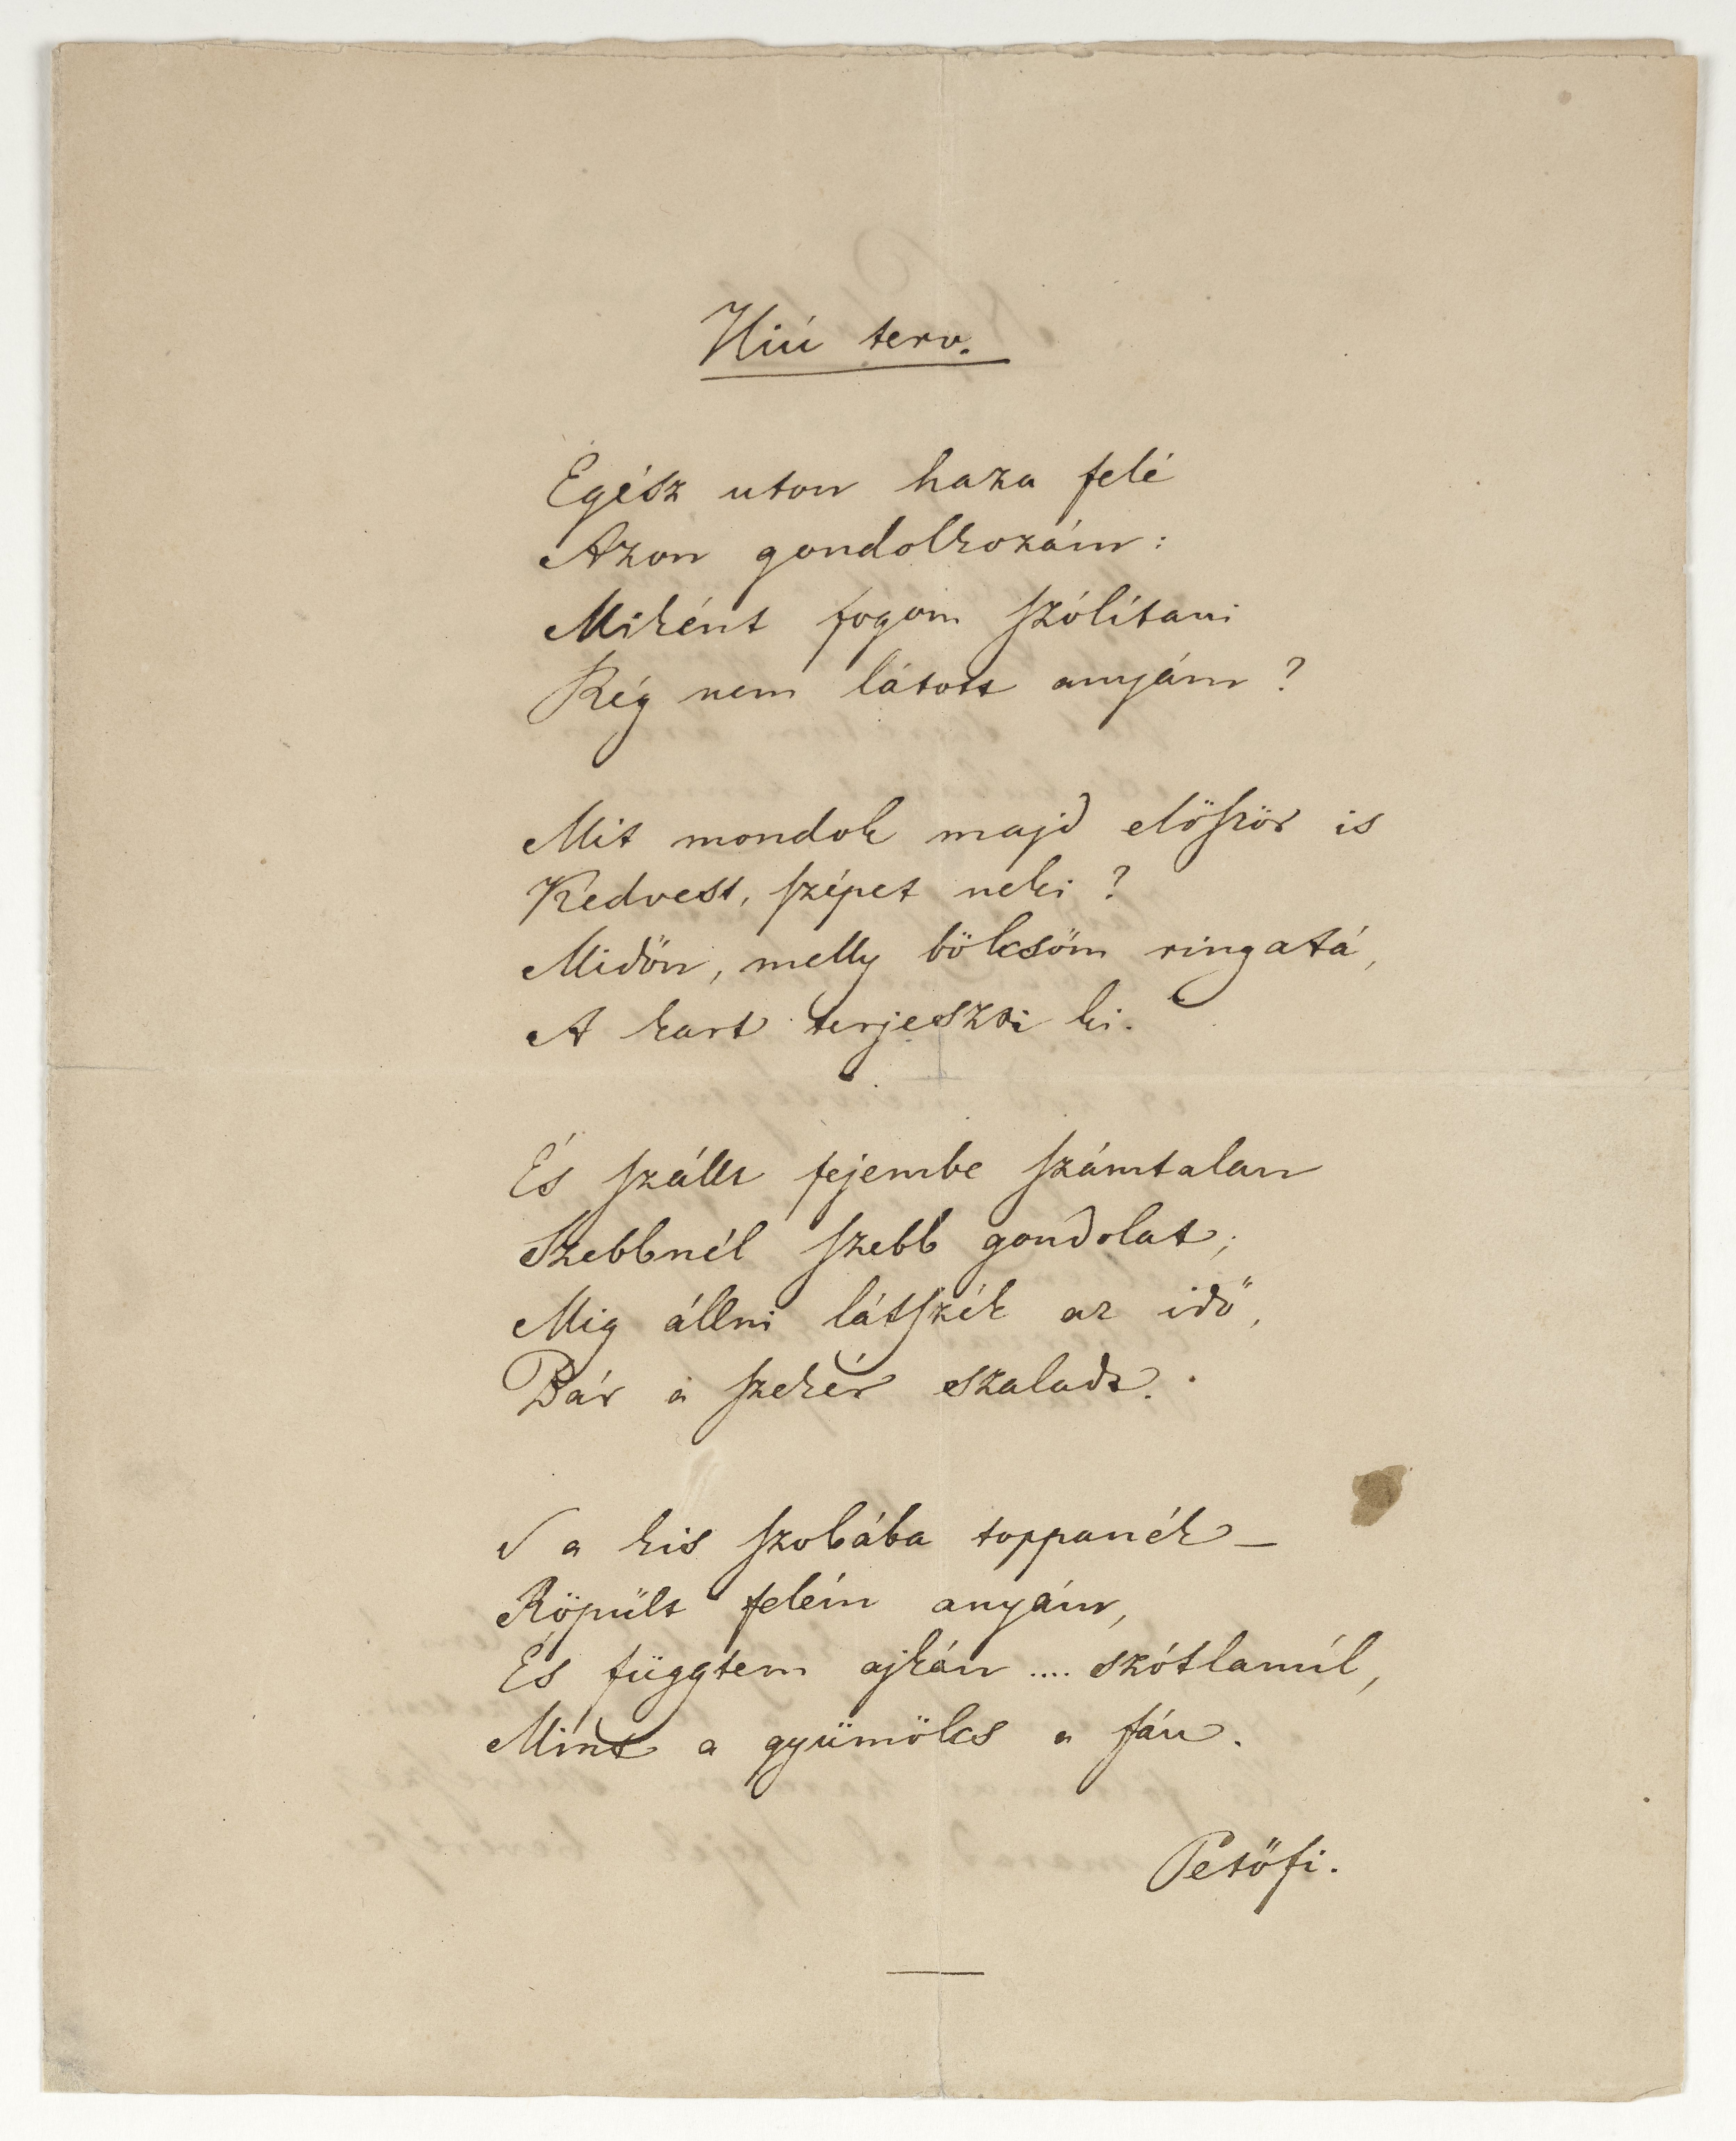 Hiú terv.
Egész uton haza felé
Azon gondolkozám:
Miként fogom szólítani
Rég nem látott anyám?
Mit mondok majd először is
Kedvest, szépet neki?
Midőn, melly bölcsőm ringatá,
A kart terjeszti ki.
És szállt fejembe számtalan
Szebbnél szebb gondolat;
Mig állni látszék az idő,
Bár a szekér szaladt.
S a kis szobába toppanék –
Röpült felém anyám,
És függtem ajkán .... szótlanúl,
Mint a gyümölcs a fán.
Petőfi.